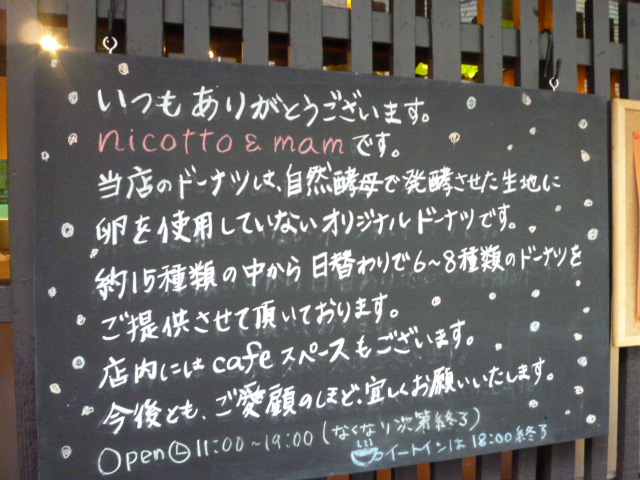 いつもありがとうございます。
nicotto & mam です。
当店のドーナツは、自然酵母で発酵させた生地に
卵を使用していないオリジナルドーナツです。
約15種類の中から日替わりで6～8種類のドーナツを
ご提供させて頂いております。
店内にはcafeスペースもございます。
今後とも、ご愛顧のほど、宜しくお願いいたします。
Open 11:00～19:00 (なくなり次第終了)
イートインは18:00終了